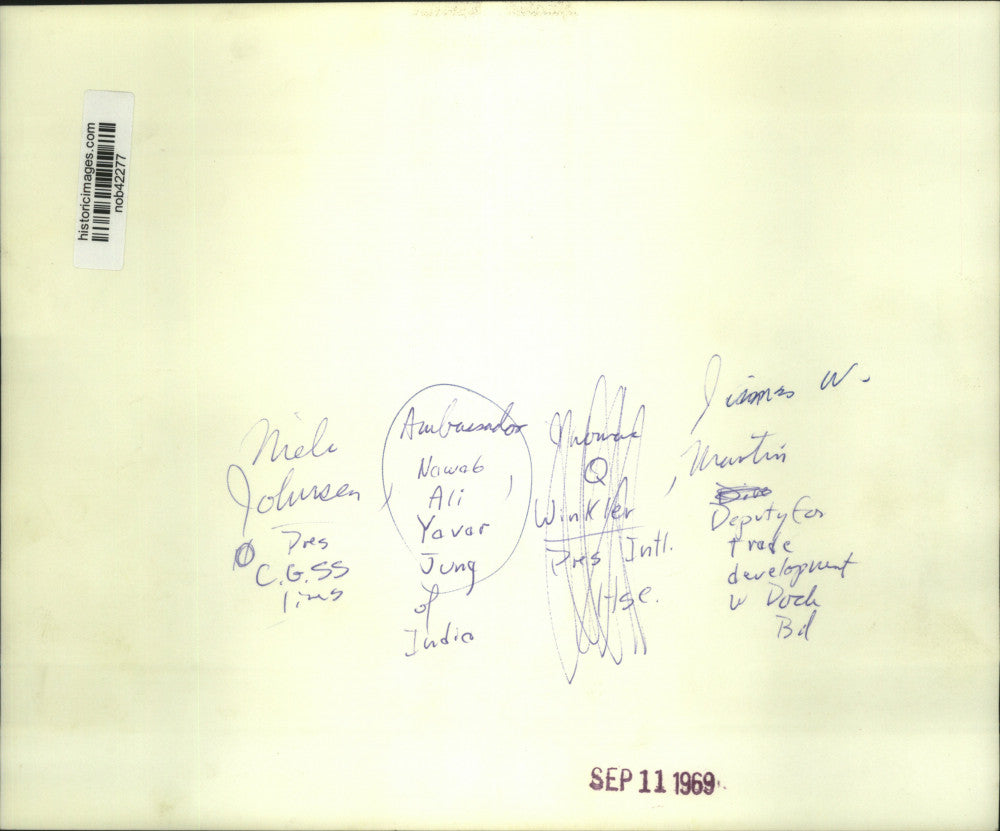 historicimages.com
nob42277
Niels
Johnsen
Pres
C.G.SS
lines
Ambassador
Nawab
Ali
Yavar
Jung
of
India
Thomas
Q
Winkler
Pres Intl.
Hse.
James W.
Martin
Deputy for
trade
development
w Dock
Bd
SEP 11 1969